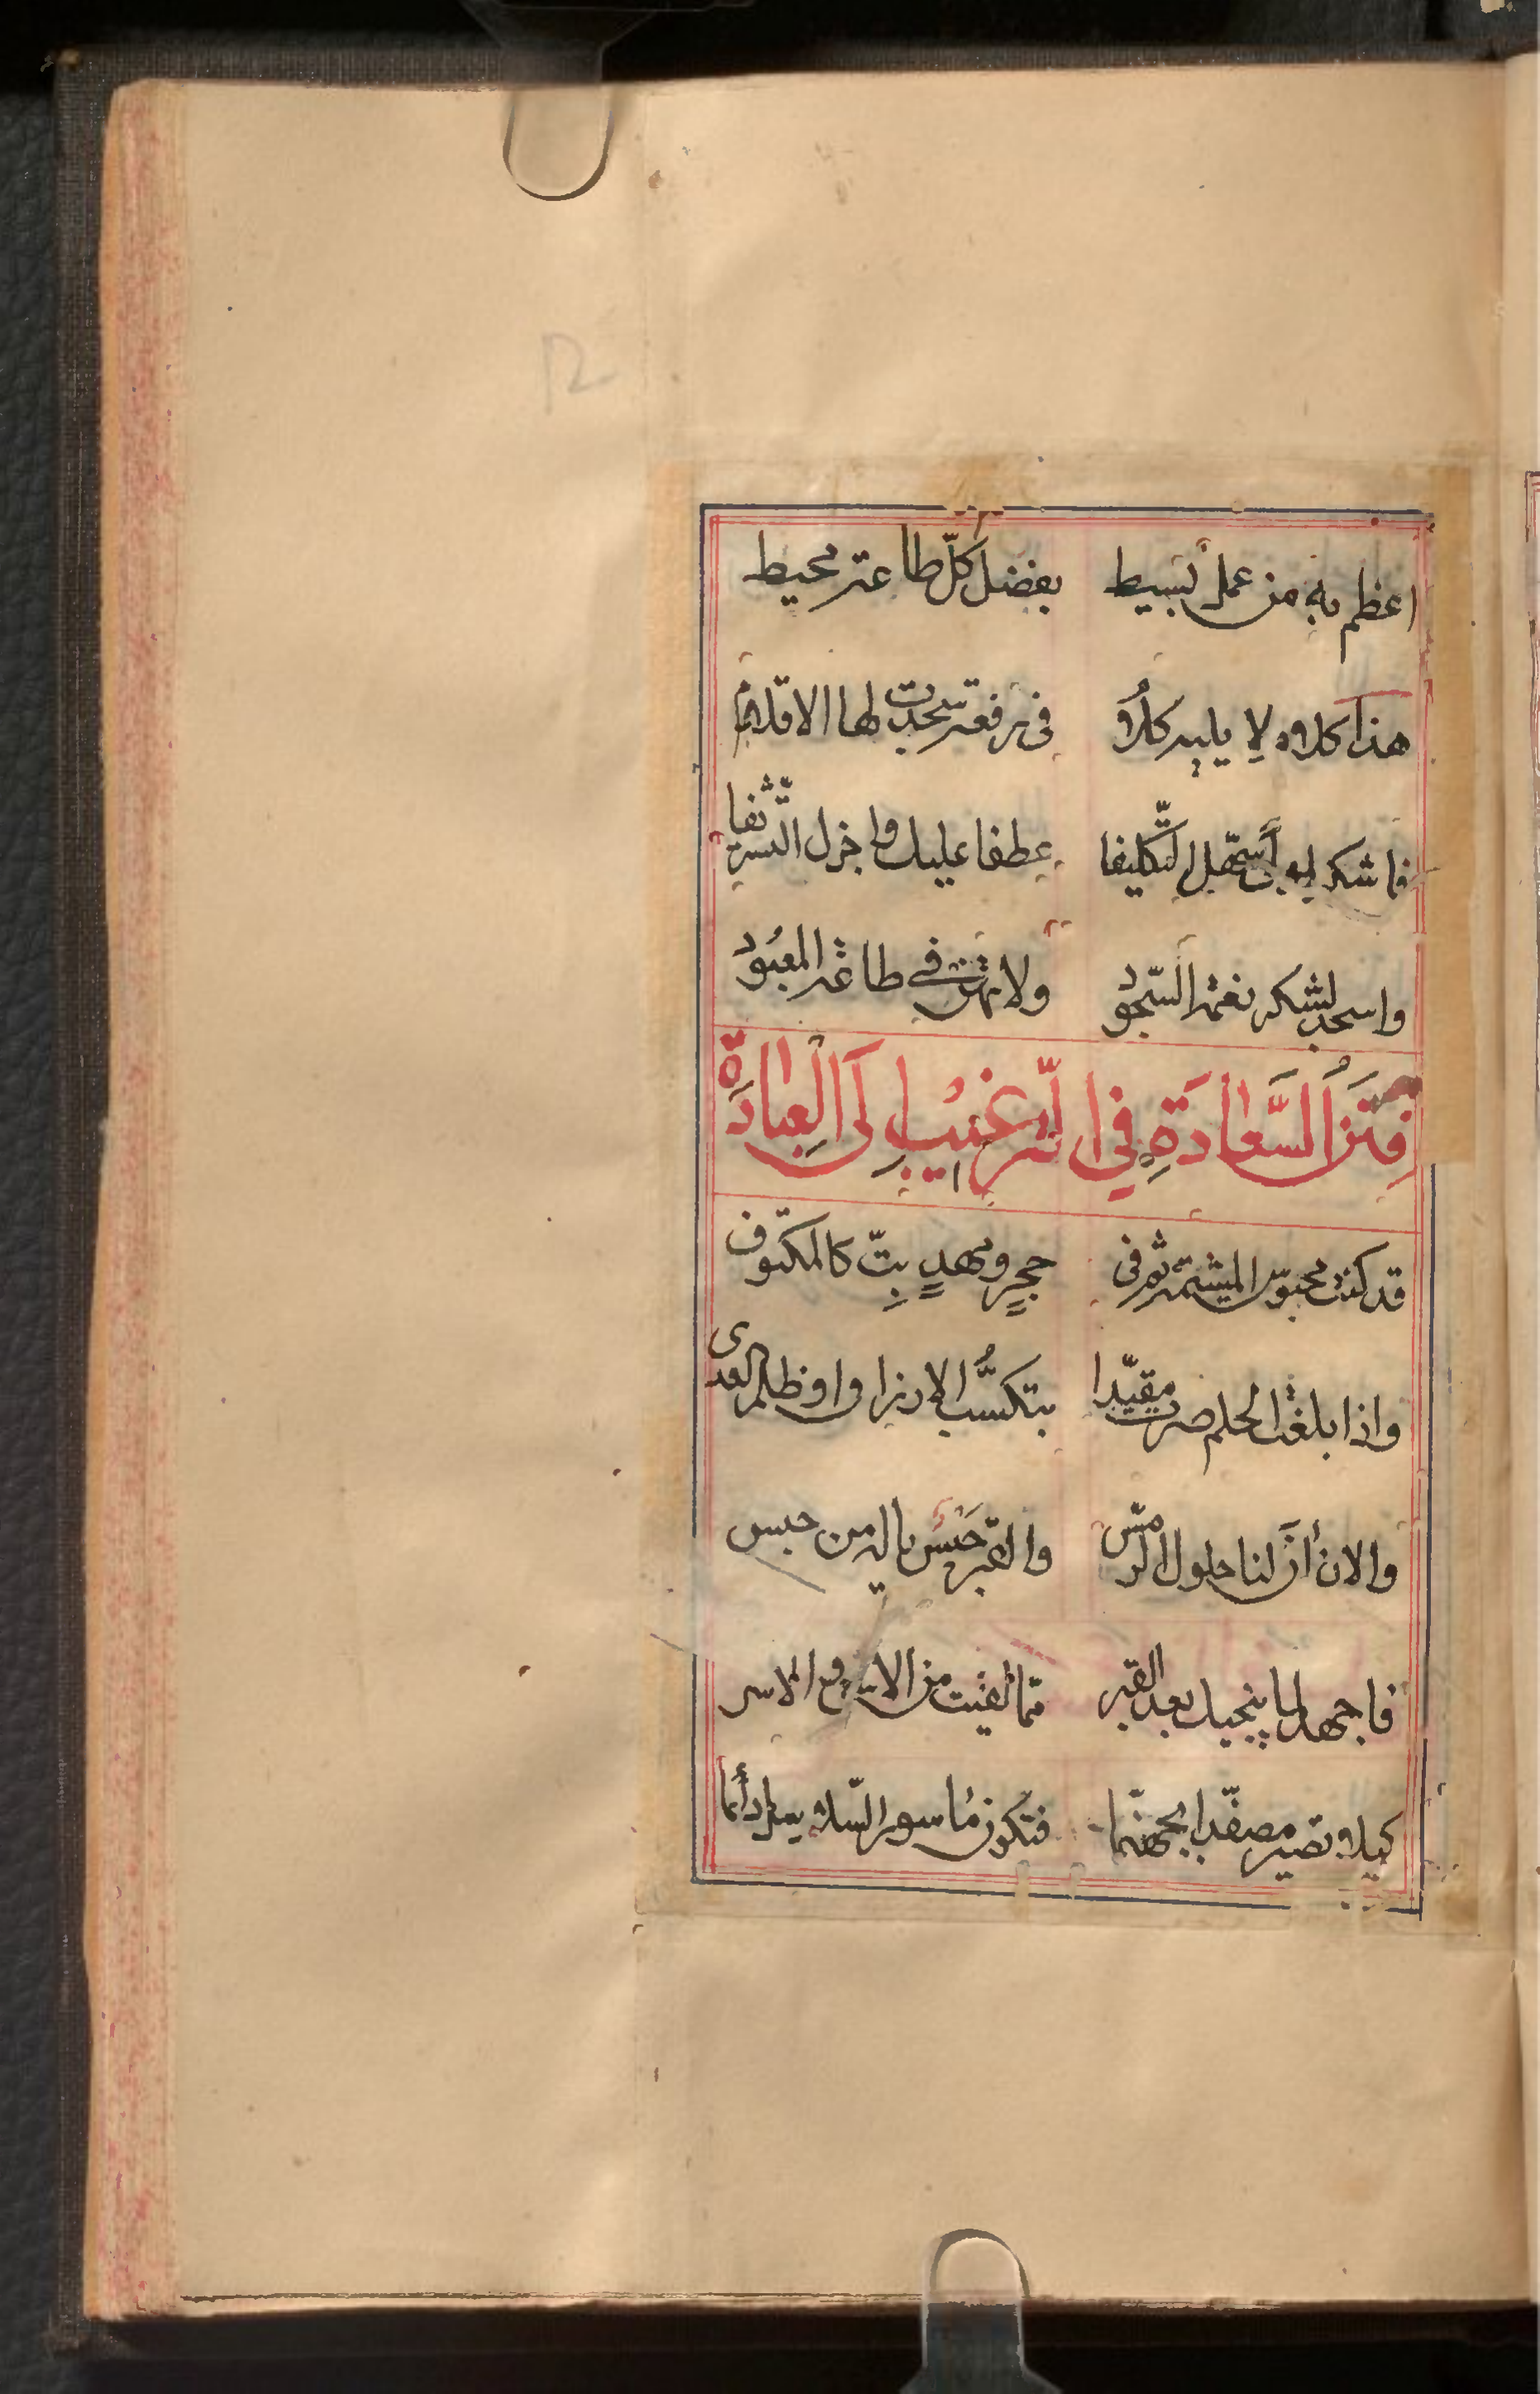 اعظم به من عمل بسيط بفضل كلّ طاعة محيط
هذا كلام لا يليه كلام في رفعة سجدت لها الاقلام
فاشكر له أن سهّل التّكليفا عطفا عليك واجزل التّشريفا
واسجد لشكر نعمة السّجود ولا تهن في طاعة المعبود
فَنَنُ السَّعادَةِ فِي التّرغيبِ اِلَى الْعِبادَة
قد كنت محبوس المشيمة ثم في حجرٍ ومهدٍ بِتّ كالمكتوف
واذا بلغت الحلم صرت مقيّدا بتكسُّب الارزاق او ظلم العدى
والان أنَ لنا حلول الرمس والقبر حَبْس يا له من حبس
فاجهد لما ينجيك بعد القبر ممّا لقيت من الأسر
كيلا تصير مصفّدا بجهنّما فتكون مأسور السّلاسل دائما
12